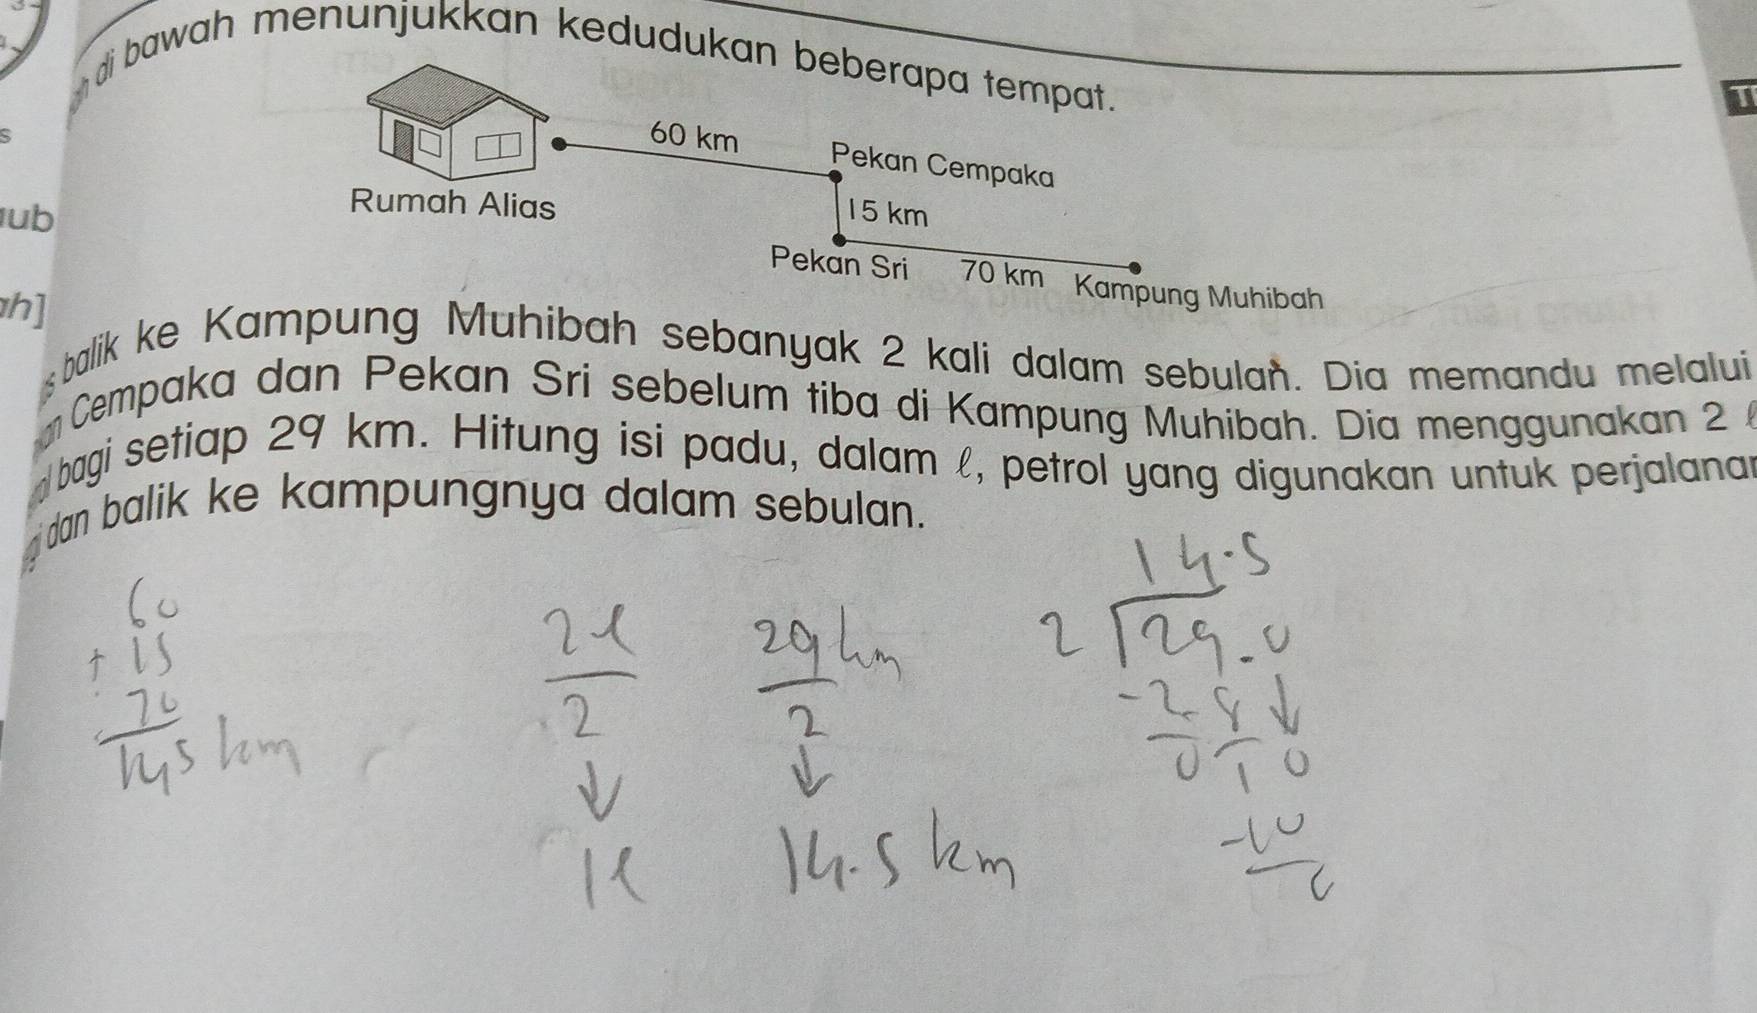 di bawah menunjukkan kedudukan beberapa tempat.
60 km
Pekan Cempaka
Rumah Alias
15 km
Pekan Sri
70 km
Kampung Muhibah
ub
ah]
balik ke Kampung Muhibah sebanyak 2 kali dalam sebulan. Dia memandu melalui
Cempaka dan Pekan Sri sebelum tiba di Kampung Muhibah. Dia menggunakan 2 ℓ
bagi setiap 29 km. Hitung isi padu, dalam ℓ, petrol yang digunakan untuk perjalanan
dan balik ke kampungnya dalam sebulan.
60
+ 15
70
145 km
2ℓ
2
↓
1ℓ
29 km
2
↓
14.5 km
14.5
2 29.0
-28↓
0 1 0
-10
0